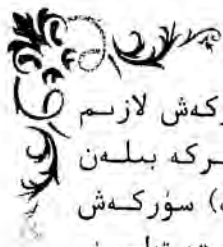 ركەش لازىم
ىركە بىلەن
) سۈركەش